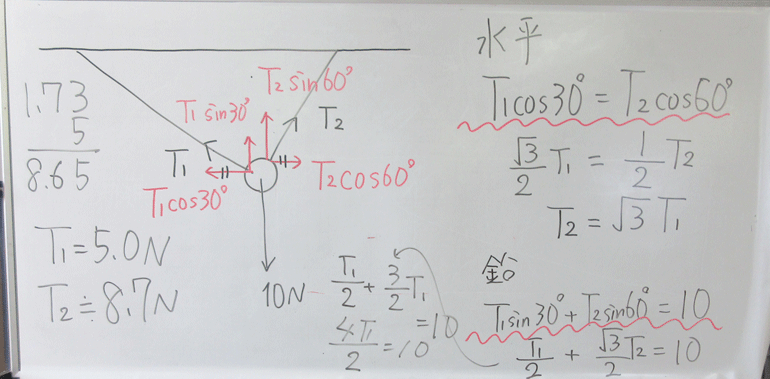 1.73
5
8.65
T₁=5.0N
T₂≒8.7N
T₁sin30°
T₂sin60°
T₁
T₂
T₁cos30°
T₂cos60°
10N
T₁/2+3/2T₁=10
4T₁/2=10
水平
T₁cos30°=T₂cos60°
√3/2T₁=1/2T₂
T₂=√3T₁
T₁sin30°+T₂sin60°=10
T₁/2+√3/2T₂=10